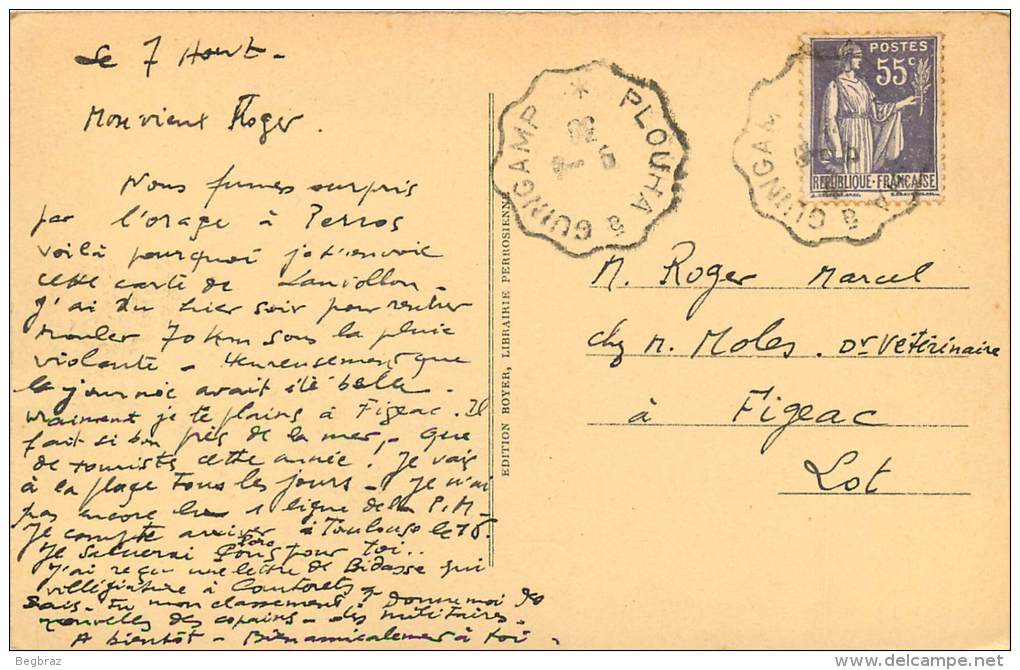 Le 7 Aout -
Mon vieux Roger.
Nous fumes surpris
par l'orage à Perros
voilà pourquoi je t'envoie
cette carte de Lanvollon -
j'ai du hier soir pour rentrer
rouler 70 km sous la pluie
violente - Heureusement que
la journée avait été belle -
vraiment je te plains à Figeac. Il
fait si bon près de la mer, - que
de touristes cette année! Je vais
à la plage tous les jours - Je n'ai
pas encore lu 1 ligne de la P.M -
Je compte arriver à Toulouse le
Je saluerai pour toi..
J'ai reçu une lettre de Bidasse qui
villégiature à Cauterets
Sais-tu mon classement? donne moi des
nouvelles des copains - des militaires -
A bientôt - Bien amicalement à toi -
EDITION BOYER, LIBRAIRIE PERROSIENNE
PLOUHA À GUINGAMP
POSTES
55c
REPUBLIQUE-FRANCAISE
A À GUINGAM
M. Roger Marcel
chez M. Moles. Dr Vétérinaire
à Figeac
Lot
Begbraz
delcampe.net